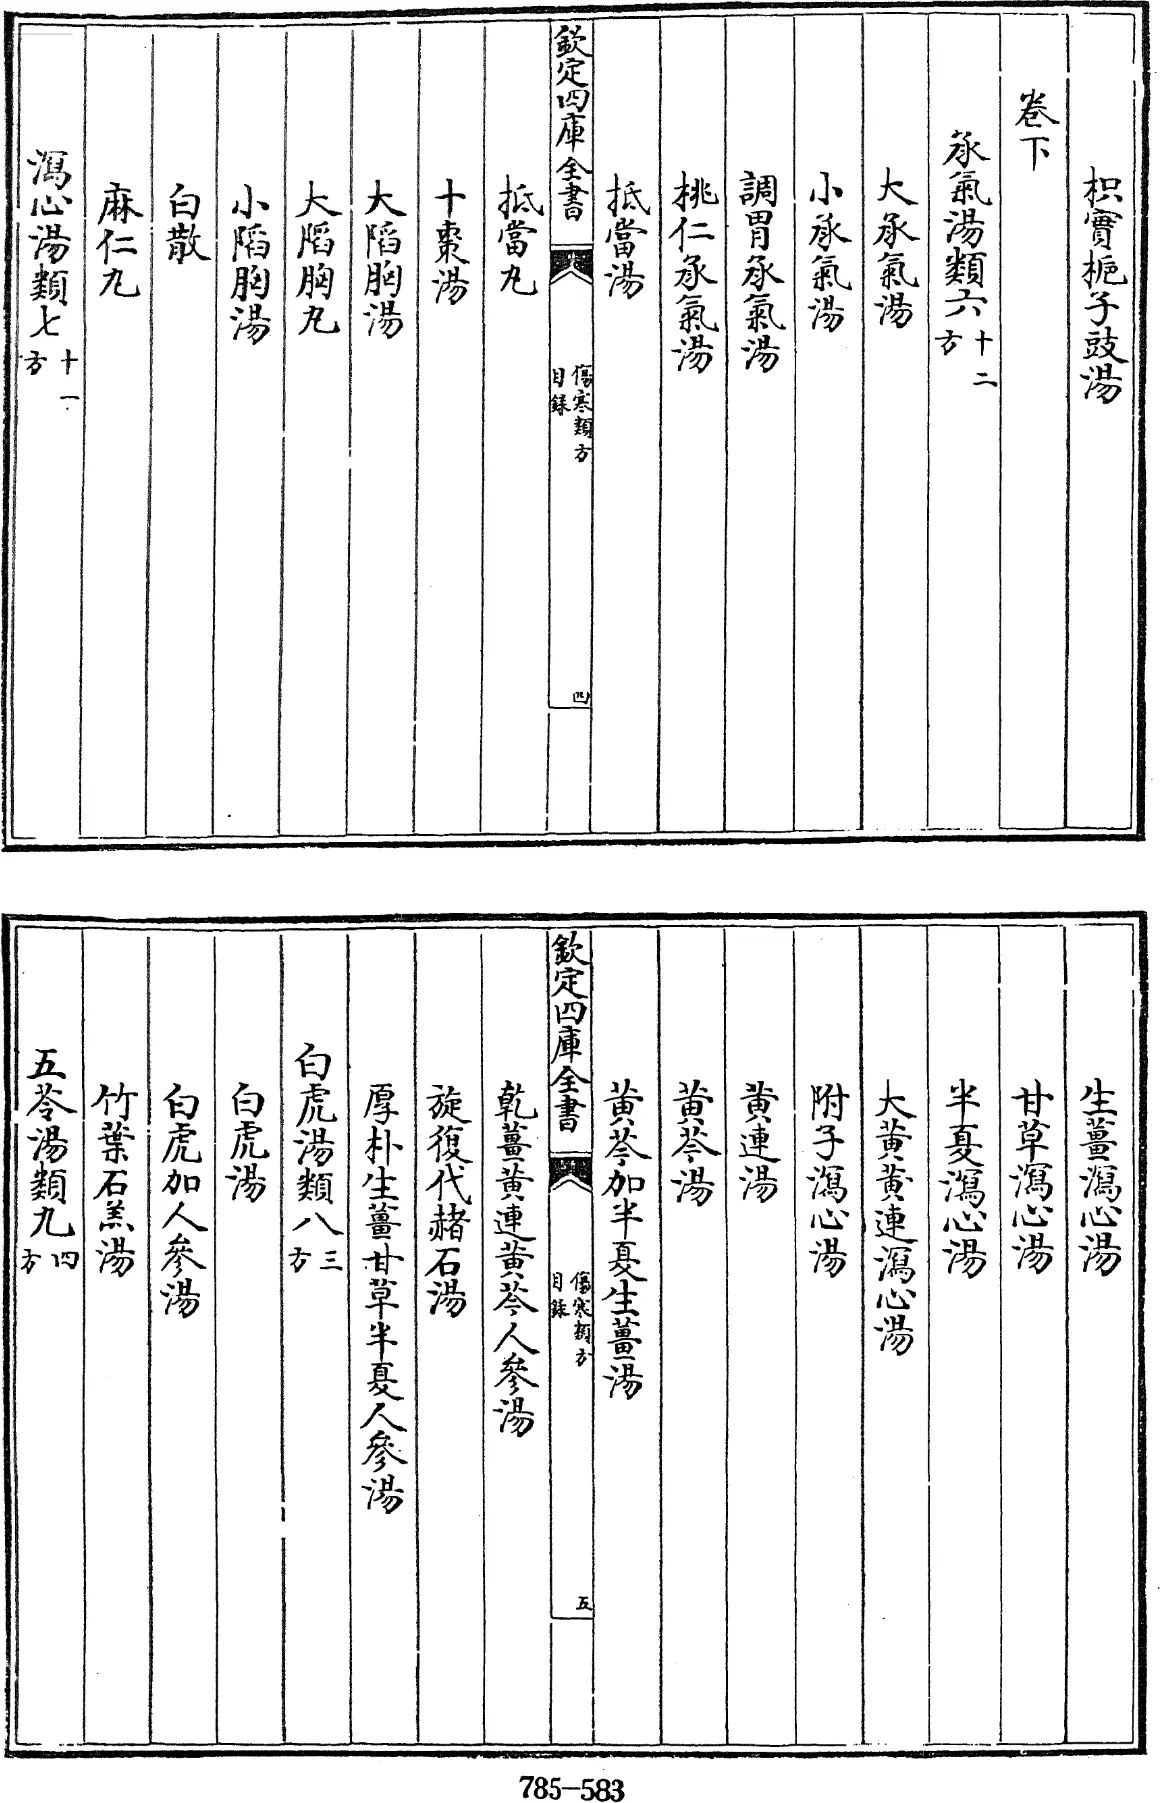 枳實梔子豉湯
卷下
承氣湯類六十二方
大承氣湯
小承氣湯
調胃承氣湯
桃仁承氣湯
抵當湯
欽定四庫全書
傷寒類方
目錄
四
抵當丸
十棗湯
大陷胸湯
大陷胸丸
小陷胸湯
白散
麻仁丸
瀉心湯類七十一方
生薑瀉心湯
甘草瀉心湯
半夏瀉心湯
大黃黃連瀉心湯
附子瀉心湯
黃連湯
黃芩湯
黃芩加半夏生薑湯
欽定四庫全書
傷寒類方
目錄
五
乾薑黃連黃芩人參湯
旋復代赭石湯
厚朴生薑甘草半夏人參湯
白虎湯類八三方
白虎湯
白虎加人參湯
竹葉石羔湯
五苓湯類九四方
785-583